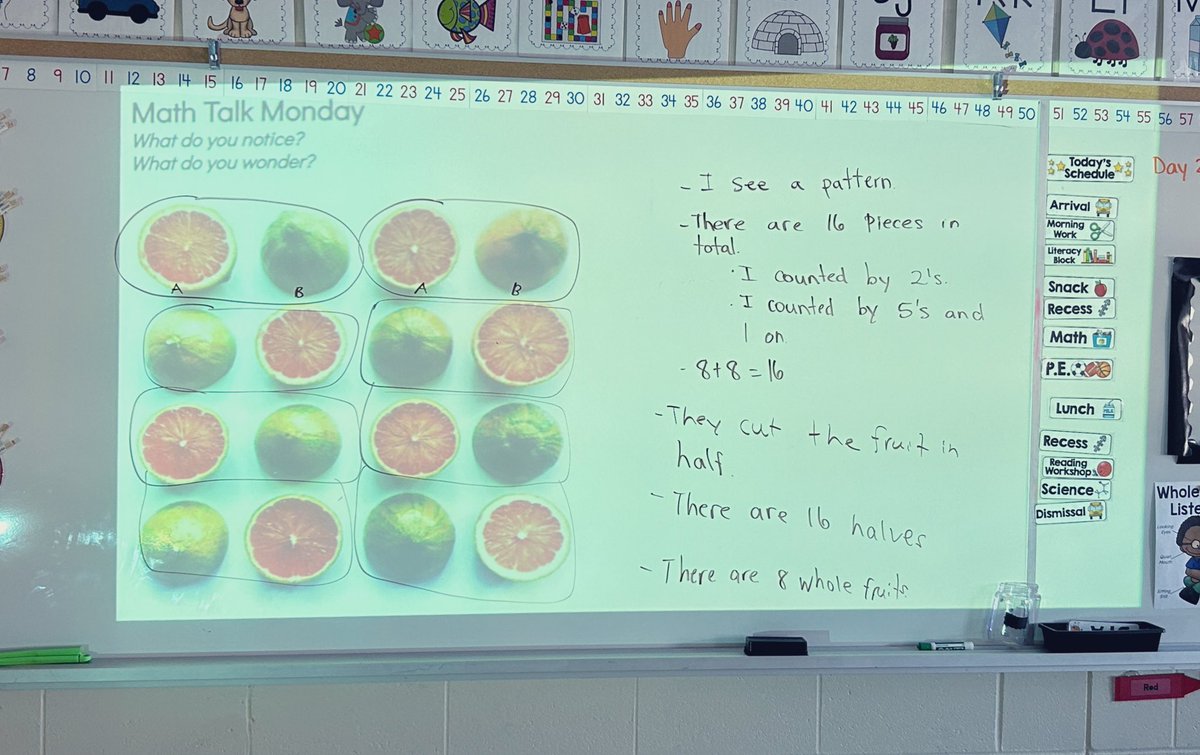 7 8 9 10 11 12 13 14 15 16 17 18 19 20 21 22 23 24 25 26 27 28 29 30 31 32 33 34 35 36 37 38 39 40 41 42 43 44 45 46 47 48 49 50 51 52 53 54 55 56 57
Math Talk Monday
What do you notice?
What do you wonder?
A B A B
- I see a pattern.
- There are 16 pieces in
total.
· I counted by 2's.
· I counted by 5's and
1 on.
- 8+8=16
- They cut the fruit in
half.
- There are 16 halves
- There are 8 whole fruits.
Today's
Schedule
Day
Arrival
Morning
Work
Literacy
Block
Snack
Recess
Math
P.E.
Lunch
Recess
Reading
Workshop
Science
Dismissal
Whole
Looking
Eyes
Quiet
Mouth
Sitting
Red